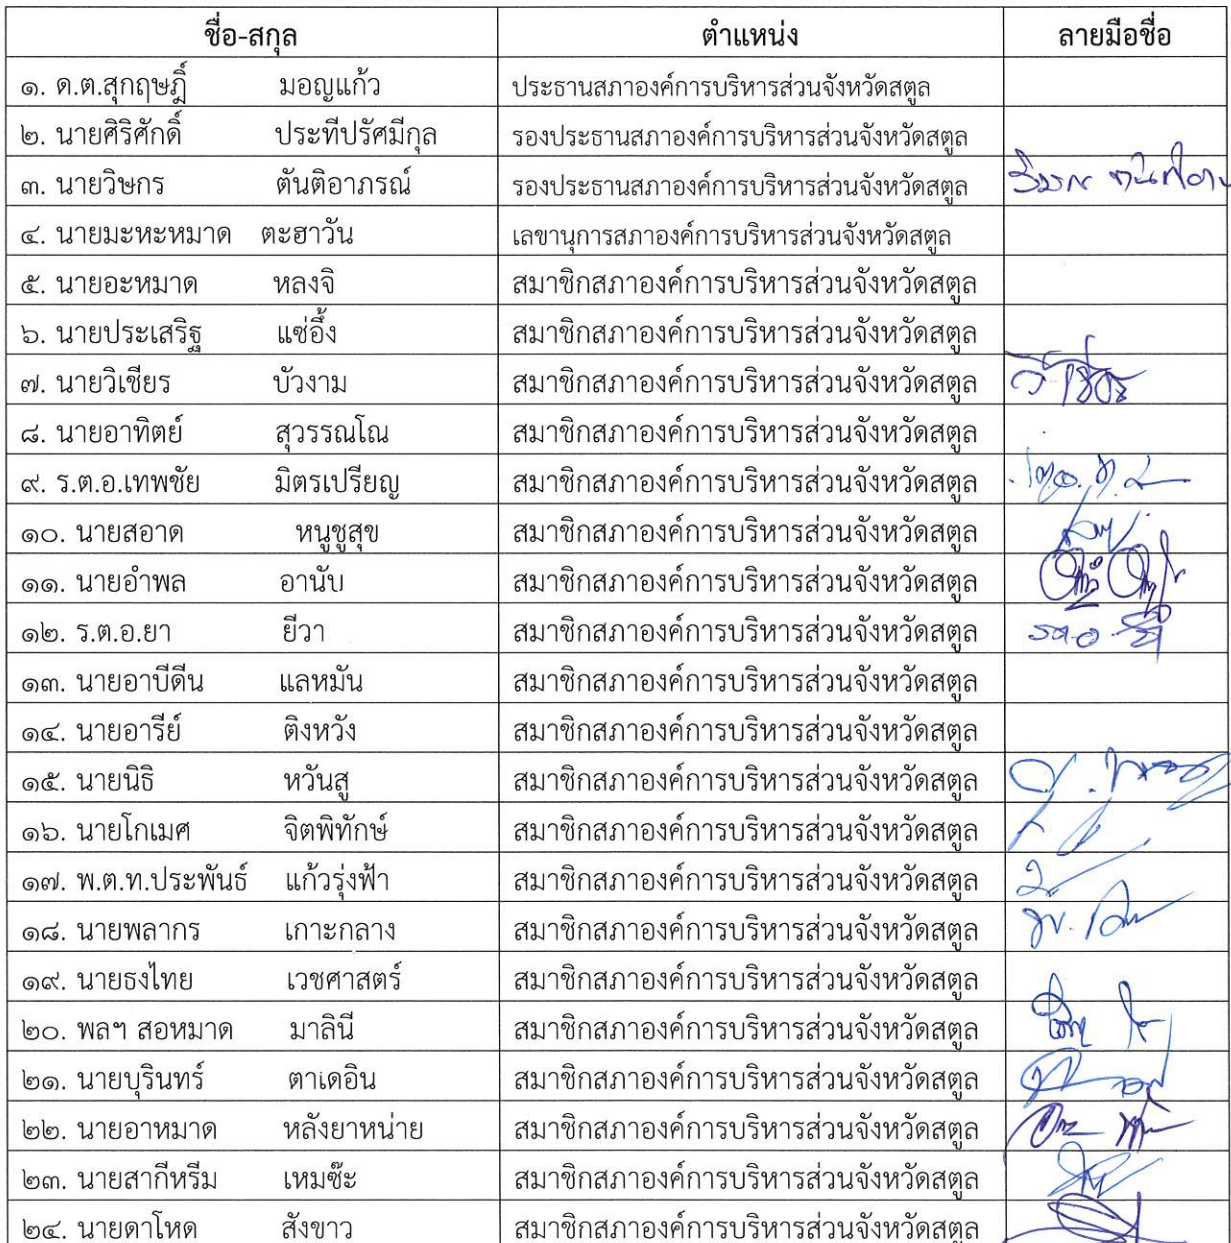 ชื่อ-สกุล ตำแหน่ง ลายมือชื่อ
๑. ด.ต.สุกฤษฎิ์ มอญแก้ว ประธานสภาองค์การบริหารส่วนจังหวัดสตูล
๒. นายศิริศักดิ์ ประทีปรัศมีกุล รองประธานสภาองค์การบริหารส่วนจังหวัดสตูล
๓. นายวิษกร ตันติอาภรณ์ รองประธานสภาองค์การบริหารส่วนจังหวัดสตูล
๔. นายมะหะหมาด ตะฮาวัน เลขานุการสภาองค์การบริหารส่วนจังหวัดสตูล
๕. นายอะหมาด หลงจิ สมาชิกสภาองค์การบริหารส่วนจังหวัดสตูล
๖. นายประเสริฐ แซ่อึ้ง สมาชิกสภาองค์การบริหารส่วนจังหวัดสตูล
๗. นายวิเชียร บัวงาม สมาชิกสภาองค์การบริหารส่วนจังหวัดสตูล วิเชียร
๘. นายอาทิตย์ สุวรรณโณ สมาชิกสภาองค์การบริหารส่วนจังหวัดสตูล
๙. ร.ต.อ.เทพชัย มิตรเปรียญ สมาชิกสภาองค์การบริหารส่วนจังหวัดสตูล
๑๐. นายสอาด หนูชูสุข สมาชิกสภาองค์การบริหารส่วนจังหวัดสตูล
๑๑. นายอำพล อานับ สมาชิกสภาองค์การบริหารส่วนจังหวัดสตูล
๑๒. ร.ต.อ.ยา ยีวา สมาชิกสภาองค์การบริหารส่วนจังหวัดสตูล
๑๓. นายอาบีดีน แลหมัน สมาชิกสภาองค์การบริหารส่วนจังหวัดสตูล
๑๔. นายอารีย์ ติงหวัง สมาชิกสภาองค์การบริหารส่วนจังหวัดสตูล
๑๕. นายนิธิ หวันสู สมาชิกสภาองค์การบริหารส่วนจังหวัดสตูล
๑๖. นายโกเมศ จิตพิทักษ์ สมาชิกสภาองค์การบริหารส่วนจังหวัดสตูล
๑๗. พ.ต.ท.ประพันธ์ แก้วรุ่งฟ้า สมาชิกสภาองค์การบริหารส่วนจังหวัดสตูล
๑๘. นายพลากร เกาะกลาง สมาชิกสภาองค์การบริหารส่วนจังหวัดสตูล
๑๙. นายธงไทย เวชศาสตร์ สมาชิกสภาองค์การบริหารส่วนจังหวัดสตูล
๒๐. พลฯ สอหมาด มาลินี สมาชิกสภาองค์การบริหารส่วนจังหวัดสตูล
๒๑. นายบุรินทร์ ตาเดอิน สมาชิกสภาองค์การบริหารส่วนจังหวัดสตูล
๒๒. นายอาหมาด หลังยาหน่าย สมาชิกสภาองค์การบริหารส่วนจังหวัดสตูล
๒๓. นายสากีหรีม เหมซ๊ะ สมาชิกสภาองค์การบริหารส่วนจังหวัดสตูล
๒๔. นายดาโหด สังขาว สมาชิกสภาองค์การบริหารส่วนจังหวัดสตูล